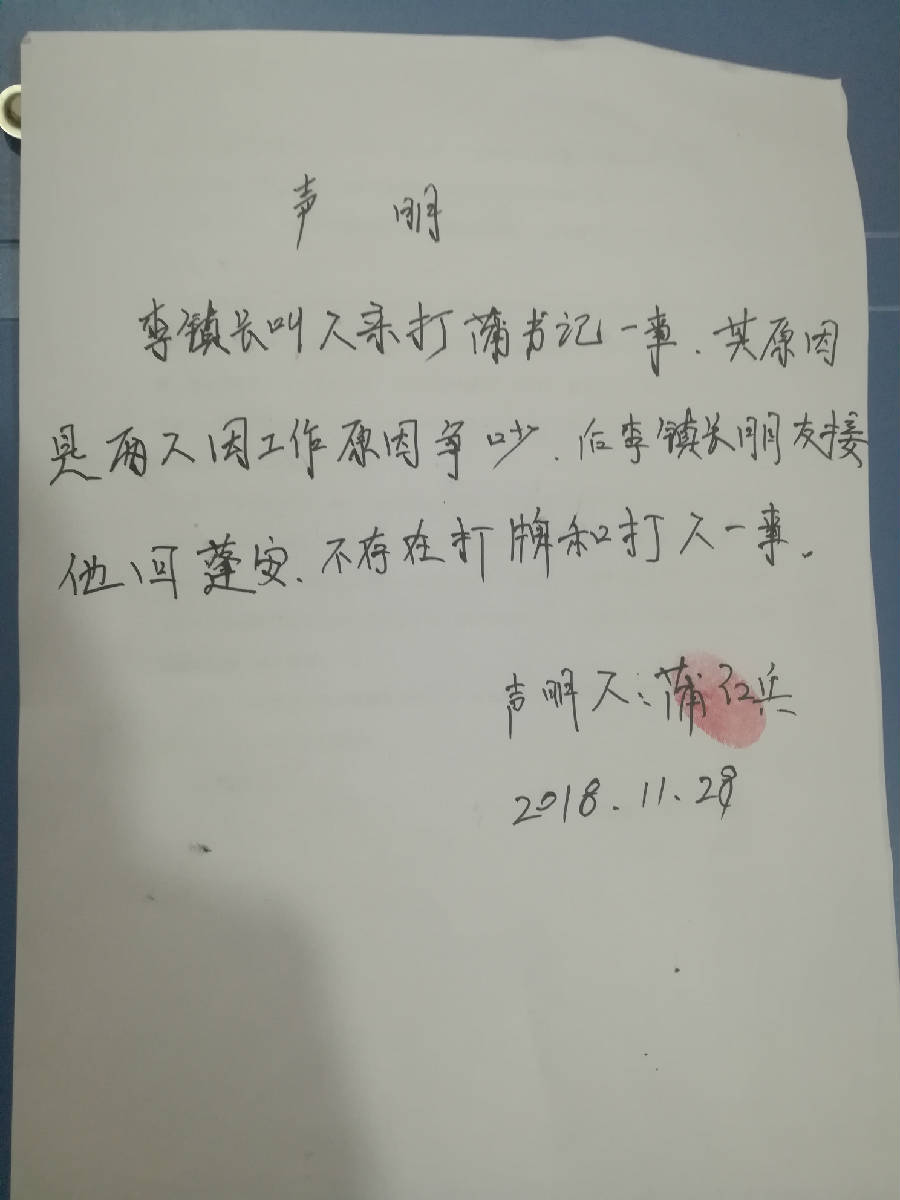 声 明
李镇长叫人来打蒲书记一事.其原因
是两人因工作原因争吵.后李镇长朋友接
他回蓬安.不存在打牌和打人一事.
声明人:蒲红兵
2018.11.28